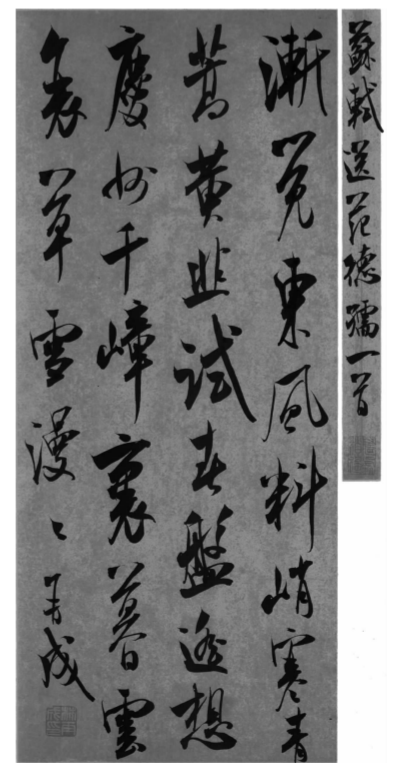 蘇軾送范德孺一首
漸覺東風料峭寒青
蒿黄韭試春盤遙想
慶州千嶂裏暮雲
衰草雪漫〻 成